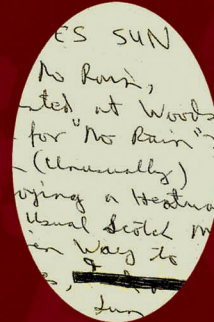 ES SUN
No Rain,
nted at Woods
for "No Rain"
(Unusually)
oying a Heatwa
Usual Scotch m
en Way to
Sun